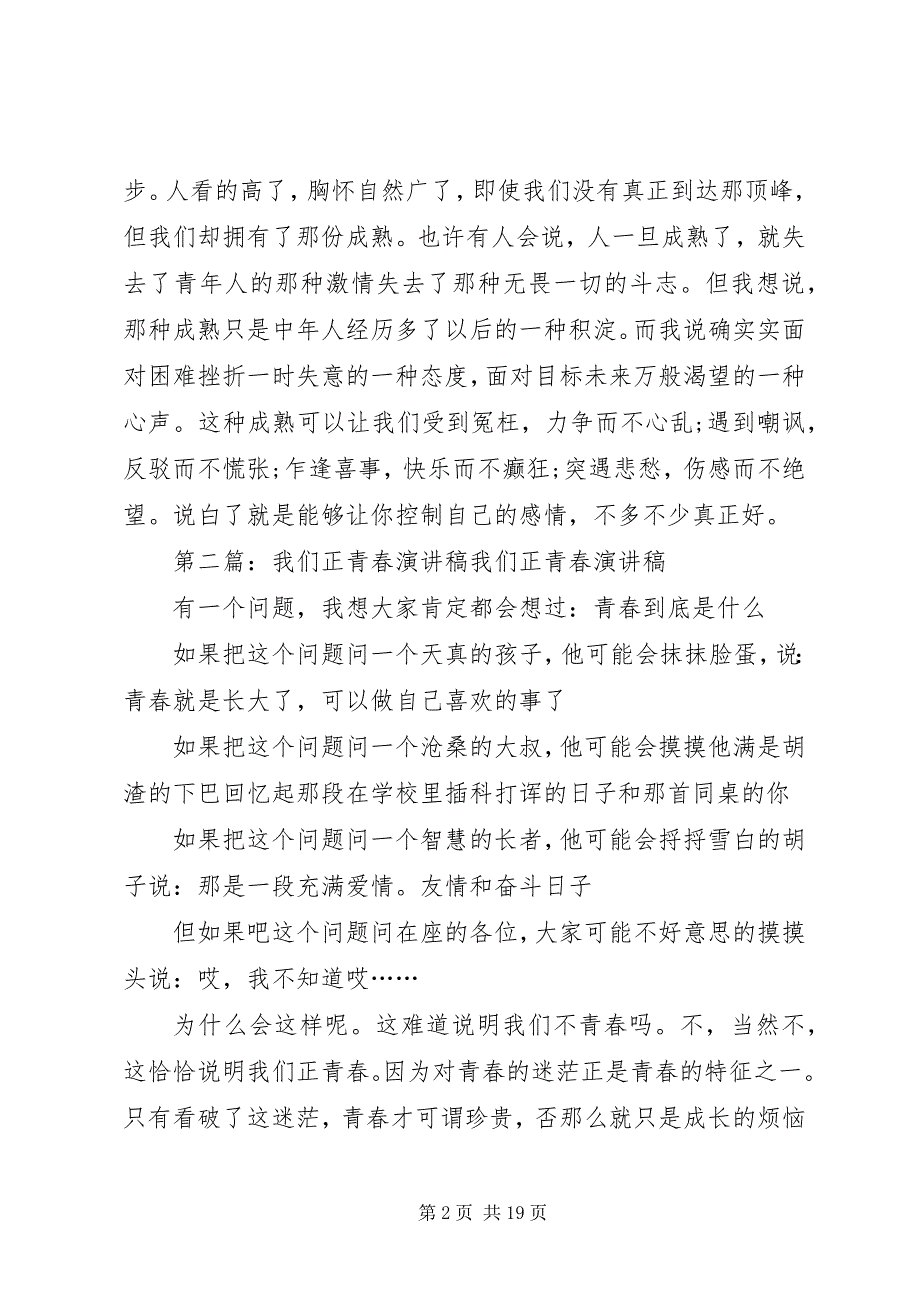 步。人看的高了，胸怀自然广了，即使我们没有真正到达那顶峰，
但我们却拥有了那份成熟。也许有人会说，人一旦成熟了，就失
去了青年人的那种激情失去了那种无畏一切的斗志。但我想说，
那种成熟只是中年人经历多了以后的一种积淀。而我说确实实面
对困难挫折一时失意的一种态度，面对目标未来万般渴望的一种
心声。这种成熟可以让我们受到冤枉，力争而不心乱;遇到嘲讽，
反驳而不慌张;乍逢喜事，快乐而不癫狂;突遇悲愁，伤感而不绝
望。说白了就是能够让你控制自己的感情，不多不少真正好。
第二篇：我们正青春演讲稿我们正青春演讲稿
有一个问题，我想大家肯定都会想过：青春到底是什么
如果把这个问题问一个天真的孩子，他可能会抹抹脸蛋，说：
青春就是长大了，可以做自己喜欢的事了
如果把这个问题问一个沧桑的大叔，他可能会摸摸他满是胡
渣的下巴回忆起那段在学校里插科打诨的日子和那首同桌的你
如果把这个问题问一个智慧的长者，他可能会捋捋雪白的胡
子说：那是一段充满爱情。友情和奋斗日子
但如果吧这个问题问在座的各位，大家可能不好意思的摸摸
头说：哎，我不知道哎……
为什么会这样呢。这难道说明我们不青春吗。不，当然不，
这恰恰说明我们正青春。因为对青春的迷茫正是青春的特征之一。
只有看破了这迷茫，青春才可谓珍贵，否那么就只是成长的烦恼
第 2 页 共 19 页